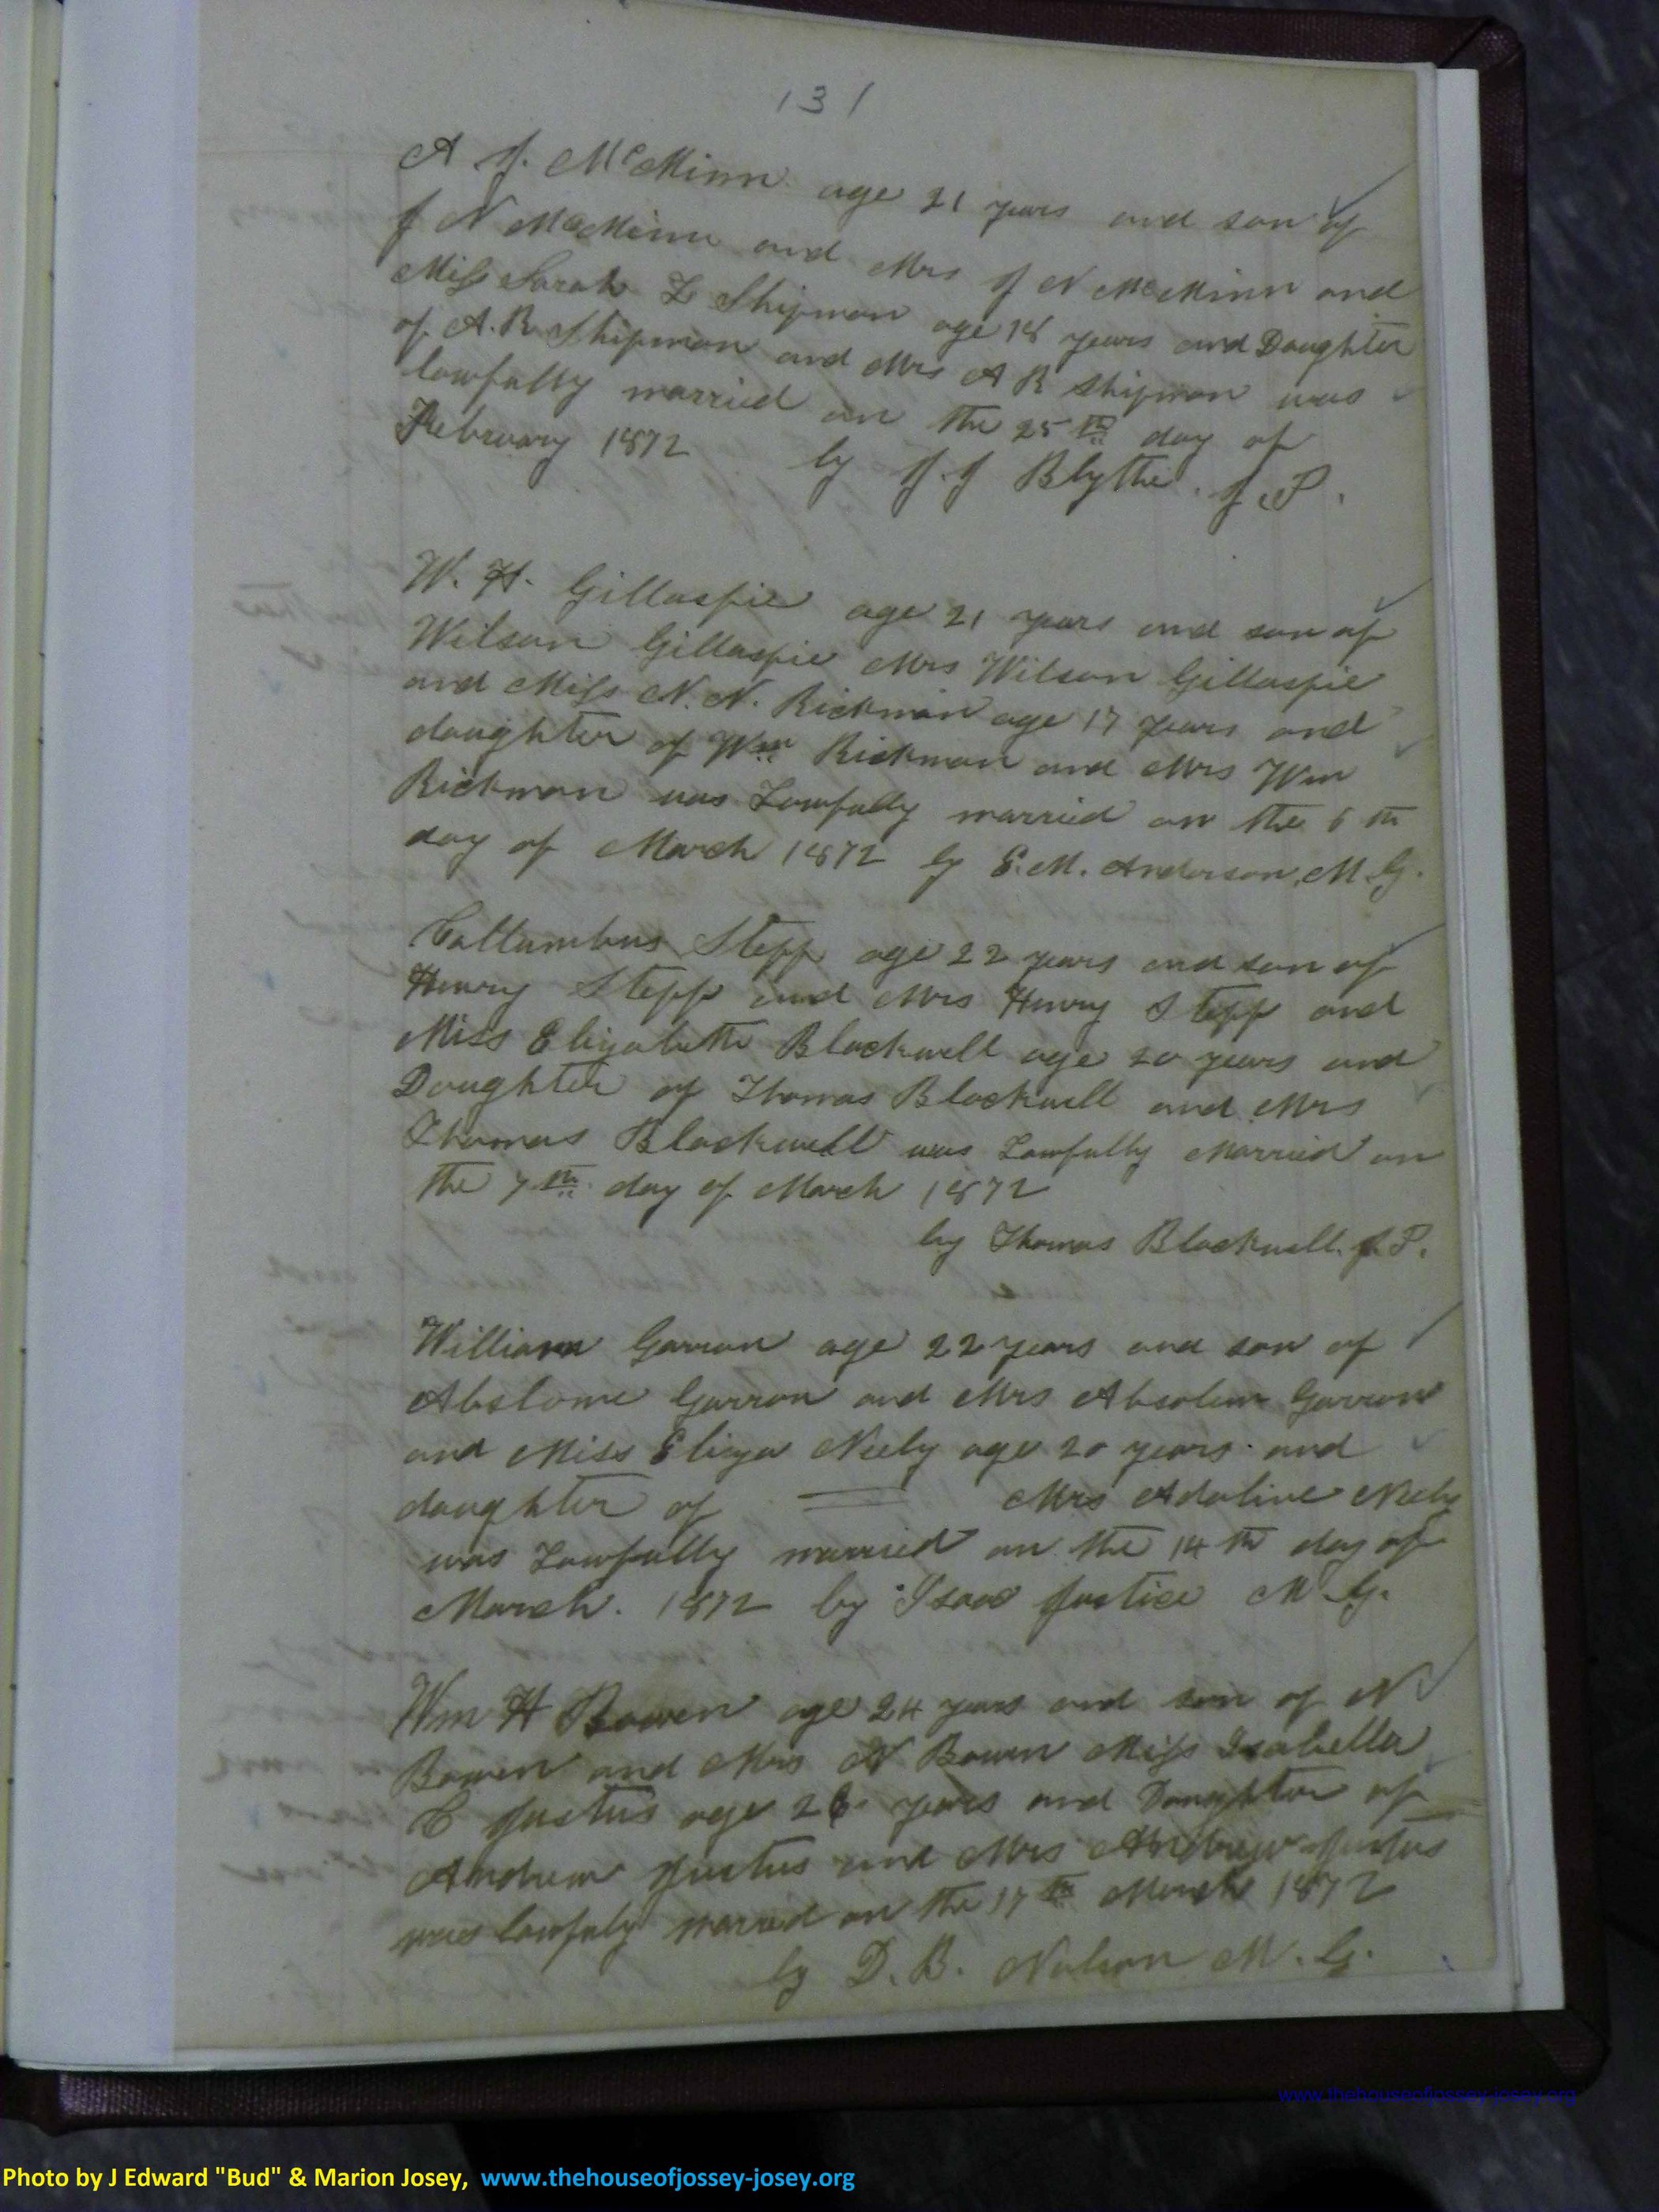 131
A J. McMinn age 21 years and son of
J N McMinn and Mrs J N McMinn and
Miss Sarah L Shipman age 18 years and Daughter
of A. R. Shipman and Mrs A R Shipman was
lawfully married on the 25th day of
February 1872 by J. J Blythe. J. P.
W. H. Gillaspie age 21 years and son of
Wilson Gillaspie Mrs Wilson Gillaspie
and Miss N. N. Rickman age 17 years and
daughter of Wm Rickman and Mrs Wm
Rickman was Lawfully married on the 6th
day of March 1872 by E. M. Anderson, M. G.
Collumbus Stepp age 22 years and son of
Henry Stepp and Mrs Henry Stepp and
Miss Elizabeth Blackwell age 20 years and
Daughter of Thomas Blackwell and Mrs
Thomas Blackwell was Lawfully Married on
the 7th day of March 1872
by Thomas Blackwell. J. P.
William Garron age 22 years and son of
Abslome Garron and Mrs Absolum Garron
and Miss Eliza Neely age 20 years and
daughter of Mrs Adaline Neely
was Lawfully married on the 14th day of
March. 1872 by Isaac Justice M. G.
Wm H Bowen age 24 years and son of N
Bowen and Mrs N Bowen Miss Isabella
C Justus age 26 years and Daughter of
Andrew Justus and Mrs Andrew Justus
was lawfuly married on the 17th March 1872
by D. B. Nelson M. G.
www.thehouseofjossey-josey.org
Photo by J Edward "Bud" & Marion Josey, www.thehouseofjossey-josey.org